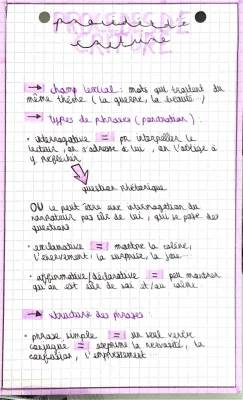 procédés de
écriture
→ champ lexical : mots qui traitent du
même thème (la guerre, la beauté...)
→ types de phrases (ponctuation) :
• interrogative = pr interpeller le
lecteur, on s'adresse à lui, on l'oblige à
y réfléchir
question rhétorique
OU ce peut être une interrogation du
narrateur pas sûr de lui, qui se pose des
questions
• exclamative = montre la colère,
l'énervement, la surprise, la joie...
• affirmative/déclarative = peut montrer
qu'on est sûr de soi et/ou calme
→ structure des phrases
• phrase simple = un seul verbe
conjugué = exprime la nervosité, la
confusion, l'empressement